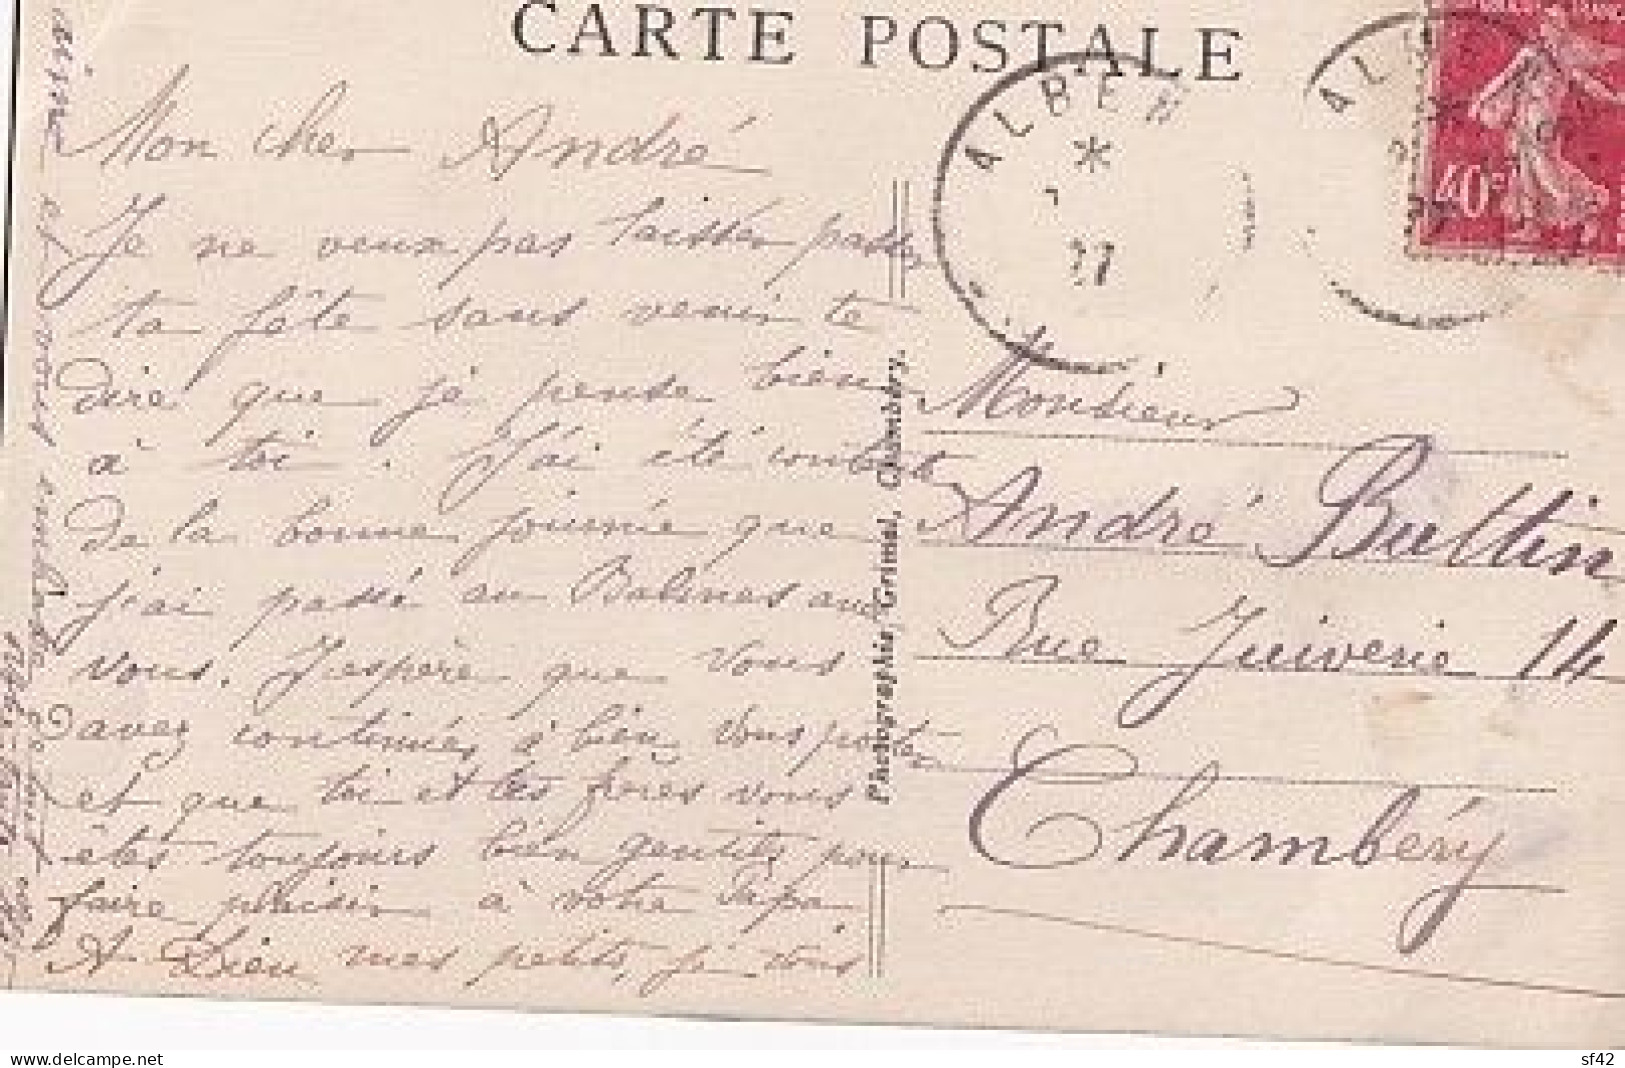 CARTE POSTALE
ALBEN
27
40c
Mon cher André
Je ne veux pas laisser passer
ta fête sans venir te
dire que je pense bien
à toi. J'ai été contente
de la bonne journée que
j'ai passé au Bolines avec
vous. J'espère que vous
avez continués à bien vous porter
et que toi et tes frères vous
êtes toujours bien gentils pour
faire plaisir à votre Papa
A Dieu mes petits, je vous
Photographie, Grimal, Chambéry.
Monsieur
André Buttin
Rue Juiverie 14
Chambéry
www.delcampe.net
sf42